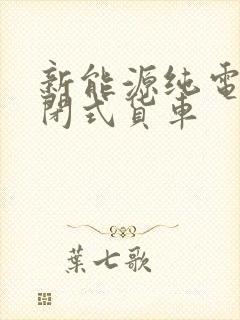 新能源纯電
閉式貨車
葉七歌